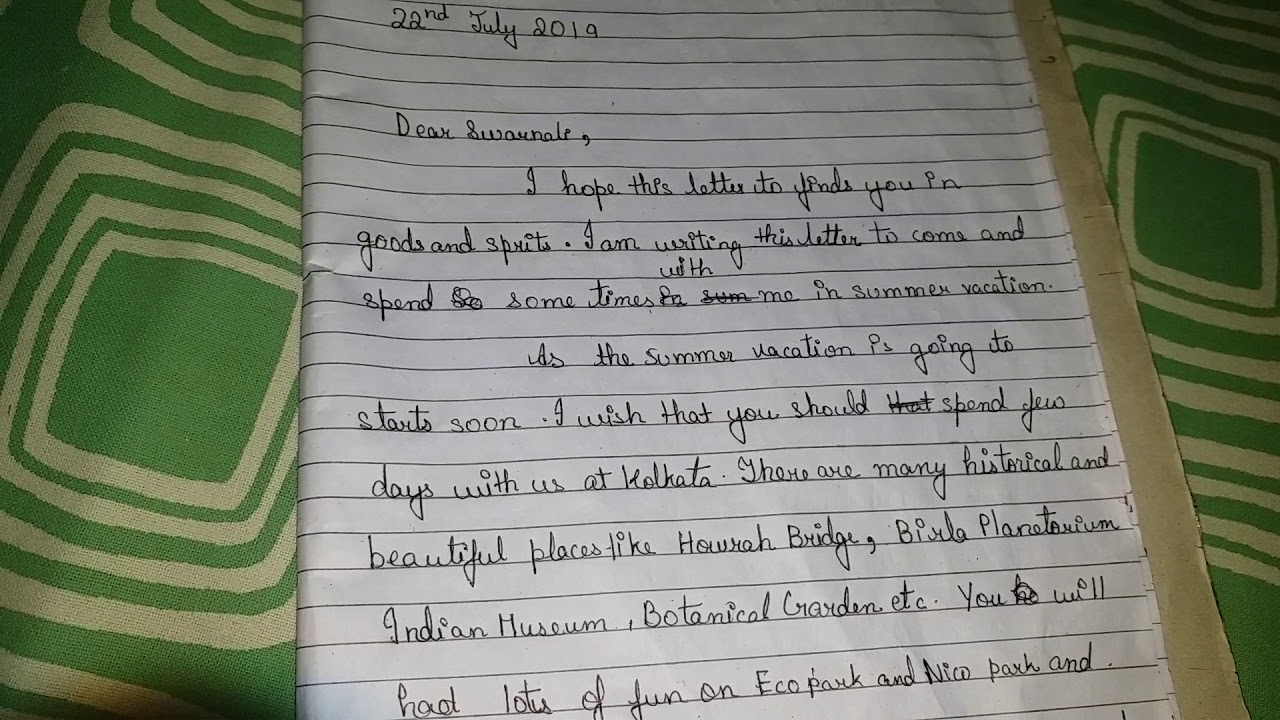 22nd July 2019
Dear Swarnale,
I hope this letter to finds you in
goods and sprits. I am writing this letter to come and
with
spend some times me in summer vacation.
As the summer vacation is going to
starts soon. I wish that you should that spend few
days with us at Kolkata. There are many historical and
beautiful places like Howrah Bridge, Birla Planetorium
Indian Museum, Botanical Garden etc. You will
had lots of fun on Eco park and Nico park and.